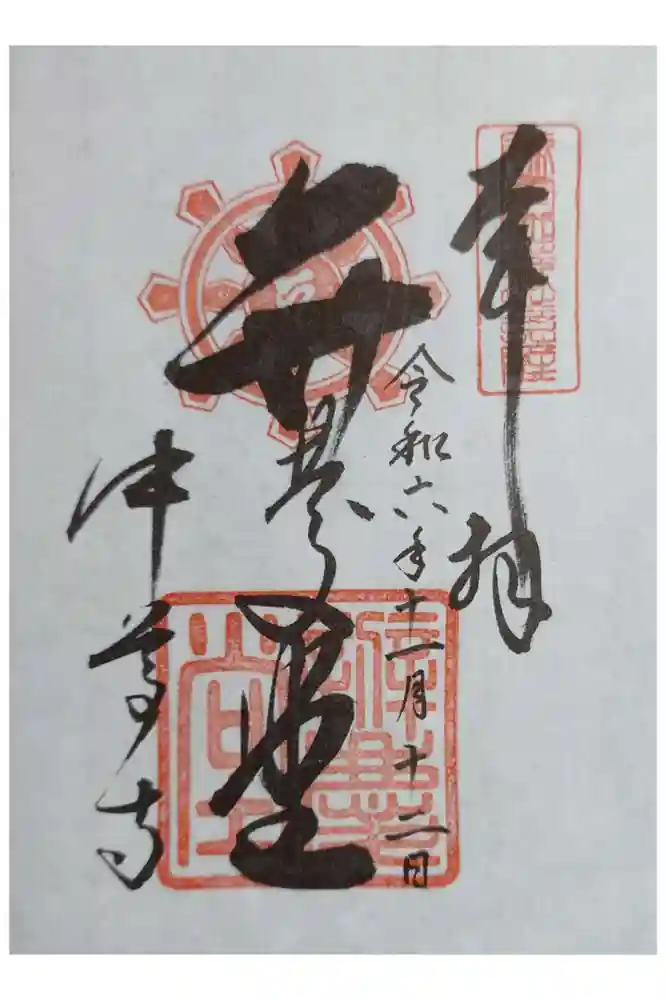 奉拝
令和六年十一月十二日
弁慶堂
中尊寺